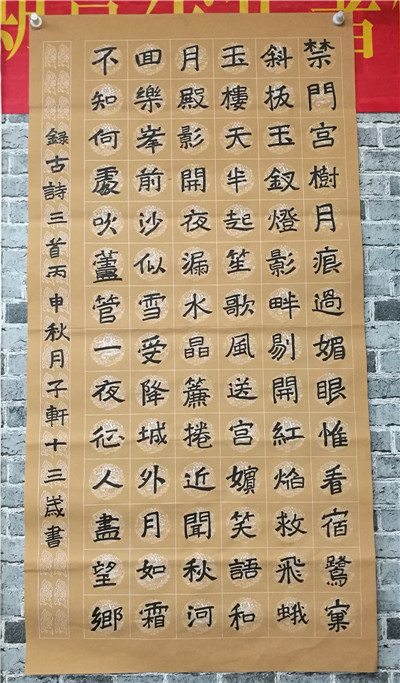 禁門宮樹月痕過媚眼惟看宿鷺窠
斜拔玉釵燈影畔剔開紅焰救飛蛾
玉樓天半起笙歌風送宮嬪笑語和
月殿影開夜漏水晶簾捲近聞秋河
回樂峯前沙似雪受降城外月如霜
不知何處吹蘆管一夜征人盡望鄉
錄古詩三首丙申秋月子軒十三歲書